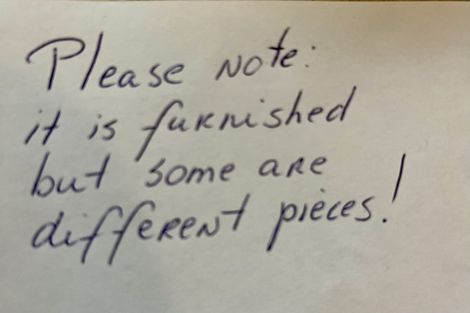 Please Note:
it is furnished
but some are
different pieces!